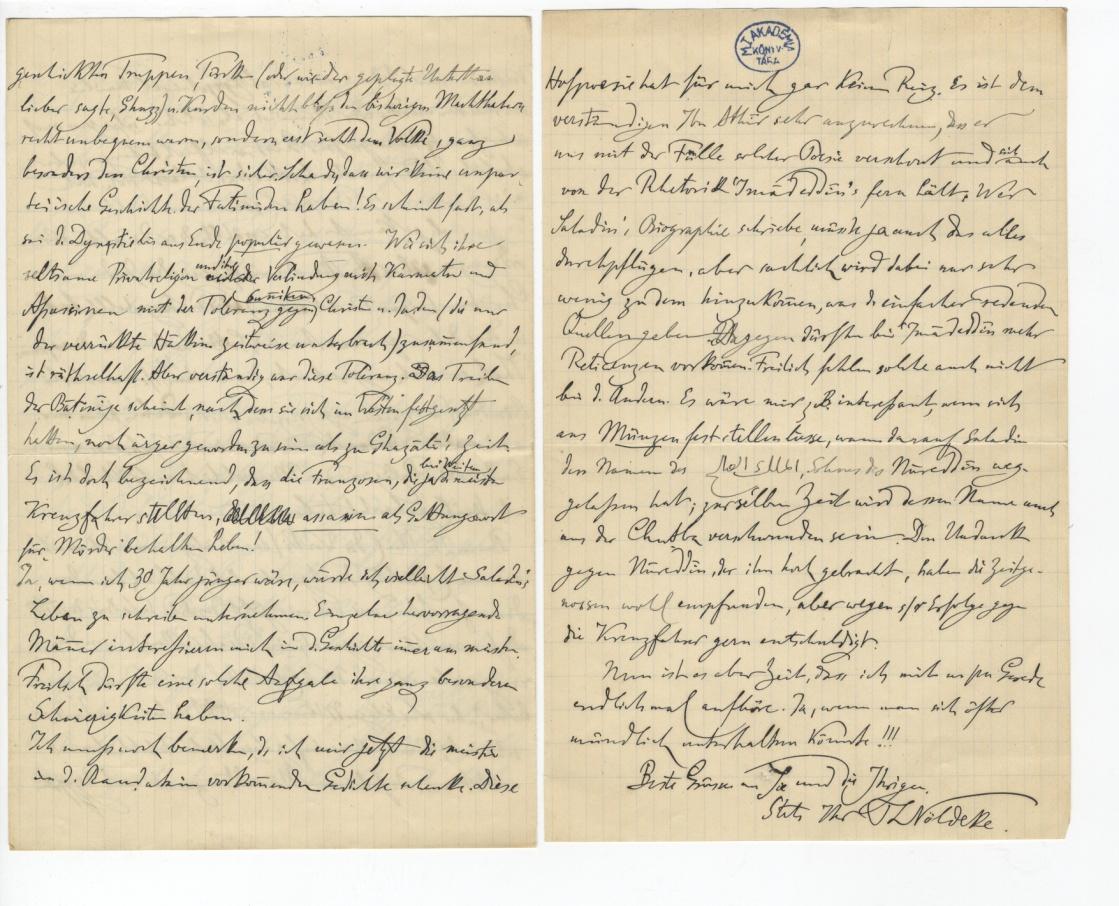 geschickten Truppen, Türken (oder wie der geplagte Unterthan
lieber sagte, Ghuzz) u. Kurden nicht bloss den bisherigen Machthabern
recht unbequem waren, sondern erst recht dem Volke, ganz
besonders den Christen, ist sicher. Schade, dass wir keine unpar-
teiische Geschichte der Fatimiden haben! Es scheint fast, als
sei d. Dynastie bis ans Ende populär gewesen. Wie sich ihre
seltsame Privatreligion und ihre Verbindung mit Karmaten und
Assassinen mit der Toleranz gegen Christen u. Juden (die nur
der verrückte Hakim zeitweise unterbrach) zusammenfand,
ist räthselhaft. Aber verständig war diese Toleranz. Das Treiben
der Bāṭinīje scheint, nachdem sie sich im Westen festgesetzt
hatten, noch ärger geworden zu sein als zu Ghazālī's Zeit.
Es ist doch bezeichnend, dass die Franzosen, die ja bei Weitem die meisten
Kreuzfahrer stellten, assassin als Gattungswort
für „Mörder" behalten haben!
Ja, wenn ich 30 Jahr jünger wäre, würde ich vielleicht Saladin's
Leben zu schreiben unternehmen. Einzelne hervorragende
Männer interessieren mich in d. Geschichte immer am meisten.
Freilich dürfte eine solche Aufgabe ihre ganz besonderen
Schwierigkeiten haben.
Ich muss noch bemerken, dss ich mir jetzt die meisten
in d. vorkommenden Gedichte schenke. Diese
M. T. AKADÉMIA
KÖNYV-
TÁRA
Hofpoesie hat für mich gar keinen Reiz. Es ist dem
verständigen Ibn Athīr sehr anzurechnen, dss er
uns mit der Fülle solcher Poesie verschont und sich auch
von der Rhetorik 'Imādeddīn's fern hält. Wer
Saladin's Biographie schriebe, müsste ja auch das alles
durchpflügen, aber sachlich wird dabei nur sehr
wenig zu dem hinzukommen, was d. einfacher redenden
Quellen geben. Dagegen dürften bei 'Imādeddīn mehr
Reticenzen vorkommen. Freilich fehlen solche auch nicht
bei d. Andern. Es wäre mir z.B. interessant, wenn sich
aus Münzen feststellen liesse, wann darauf Saladin
den Namen des الملك الصالح, Sohnes des Nūreddīn weg-
gelassen hat; zur selben Zeit wird dessen Name auch
aus der Chuṭba verschwunden sein. Den Undank
gegen Nūreddīn, der ihn hoch gebracht, haben die Zeitge-
nossen wohl empfunden, aber wegen sr Erfolge gegen
die Kreuzfahrer gern entschuldigt.
Nun ist es aber Zeit, dass ich mit m/n Gerede
endlich mal aufhöre. Ja, wenn man sich öfter
mündlich unterhalten könnte!!!
Beste Grüsse an Sie und die Ihrigen.
Stets Ihr ThNöldeke.